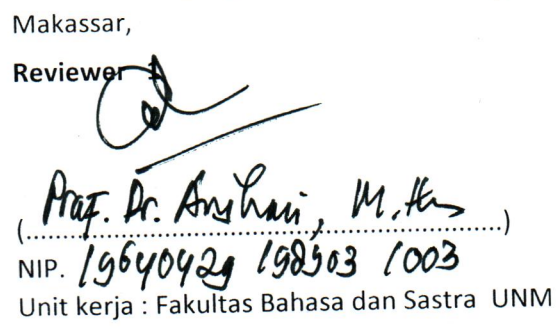 Makassar,
Reviewer 1
Prof. Dr. Anshari, M.Hum
(....................................................................)
NIP. 19640429 198903 1 003
Unit kerja : Fakultas Bahasa dan Sastra UNM